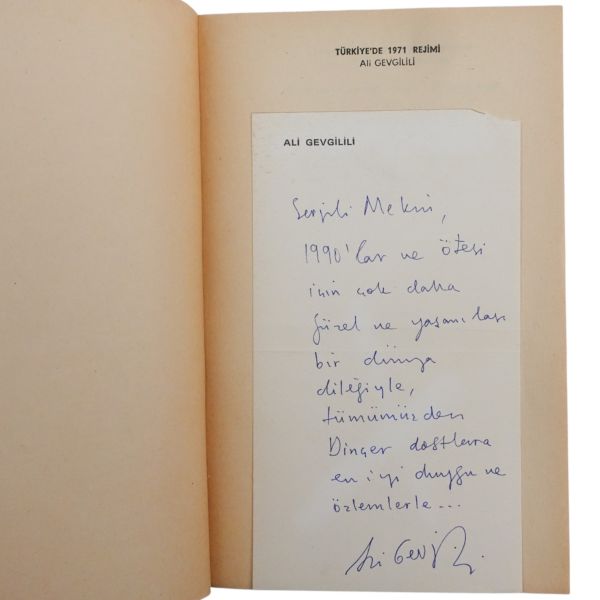 TÜRKİYE'DE 1971 REJİMİ
Ali GEVGİLİLİ
ALİ GEVGİLİLİ
Sevgili Mekin,
1990'lar ve ötesi
için çok daha
güzel ve yaşanılası
bir dünya
dileğiyle,
tümümüzden
Dinçer dostlara
en iyi duygu ve
özlemlerle...
Ali Gevgilili